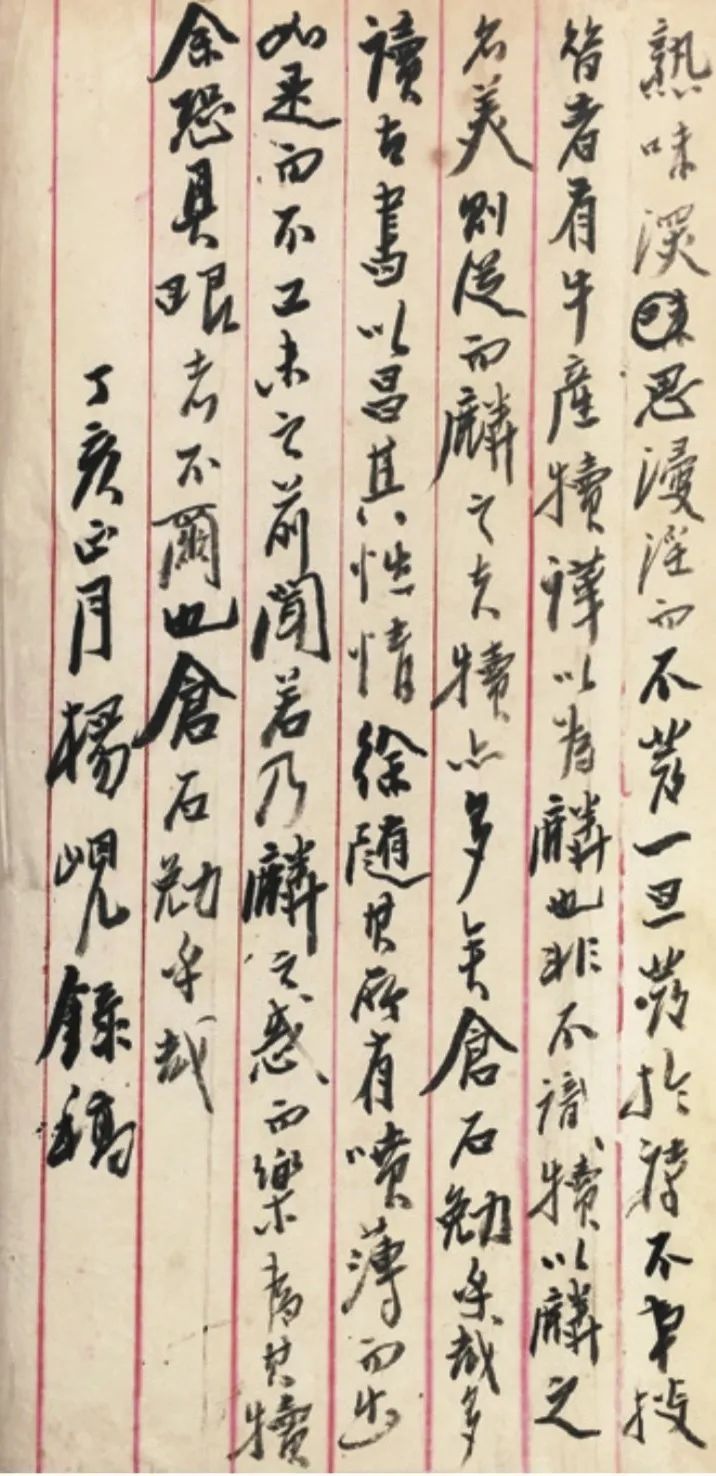 熟味深味思漫淫而不發一旦發於詩不
昔者有牛產犢譁以為麟也非不識犢以麟之
名美則從而麟之夫犢亦多矣倉石勉乎哉多
讀古書以昌其性情徐隨其所有噴薄而出
如是而不工未之前聞若乃麟之惑而樂為其犢
余恐具眼者不爾也倉石勉乎哉
丁亥正月楊峴錄稿